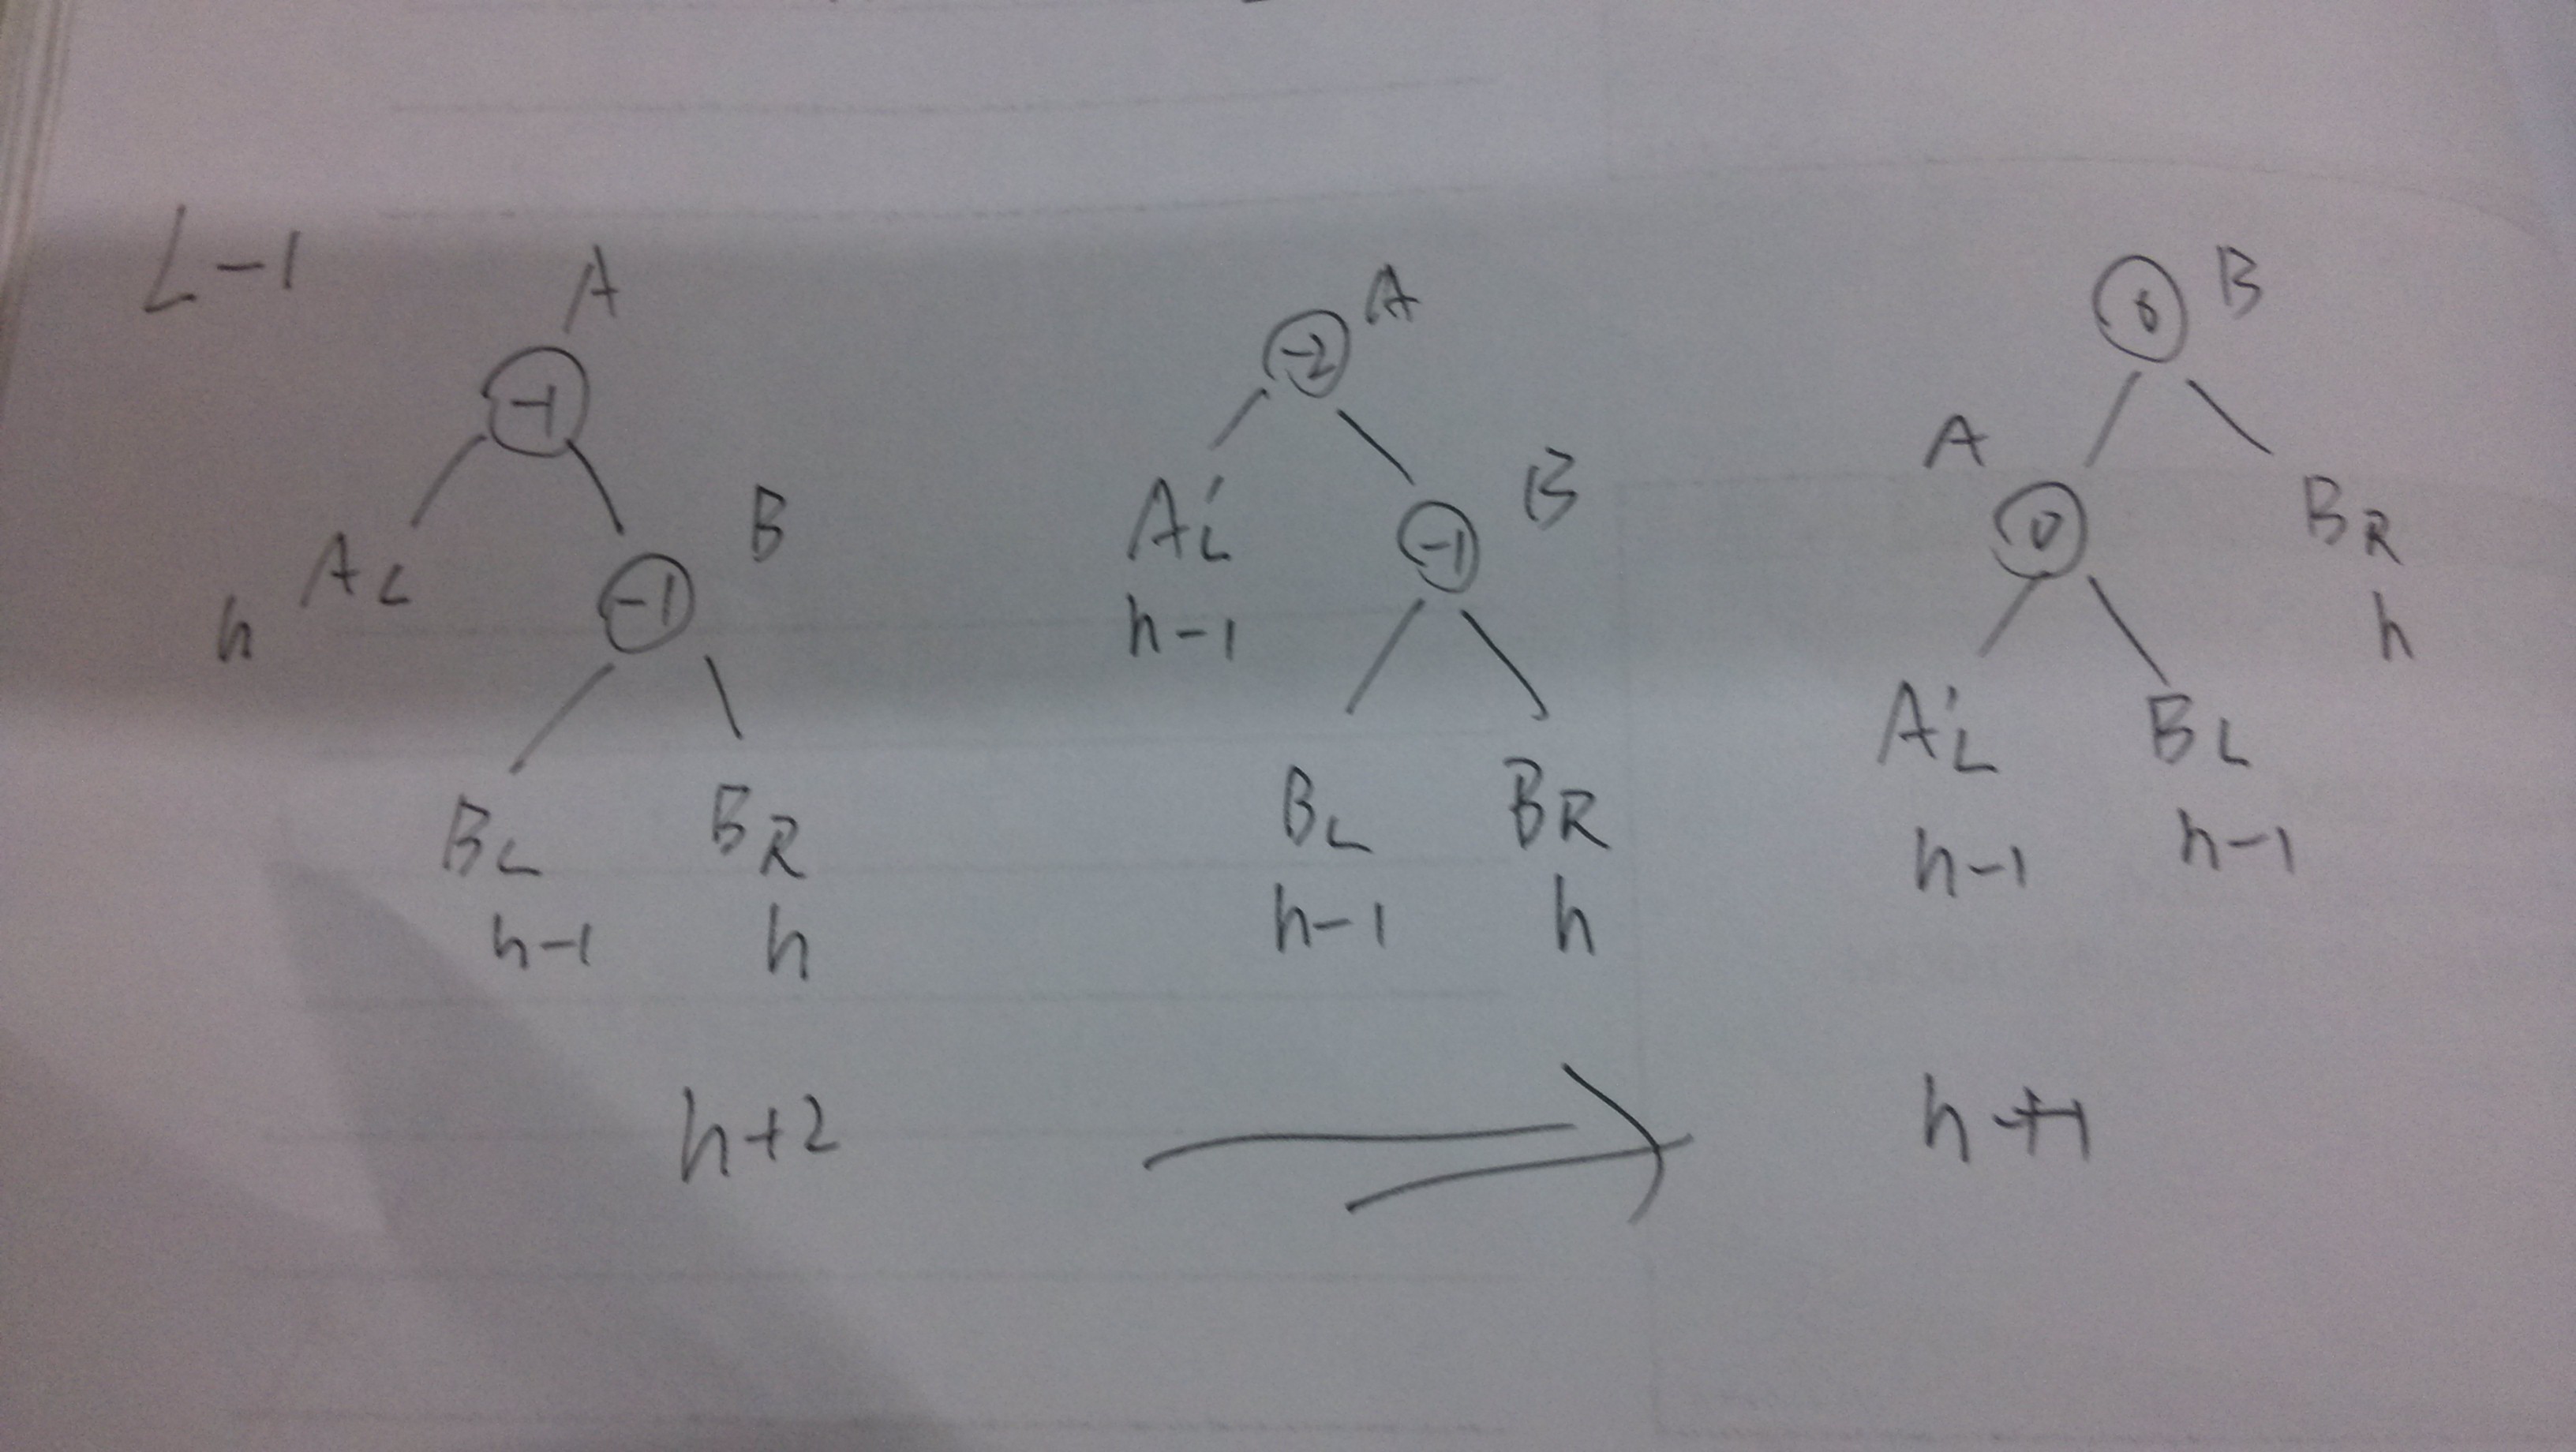 L-1
A
-1
AL
h
B
-1
BL
h-1
BR
h
A
-2
A'L
h-1
B
-1
BL
h-1
BR
h
B
0
A
0
BR
h
A'L
h-1
BL
h-1
h+2
h+1